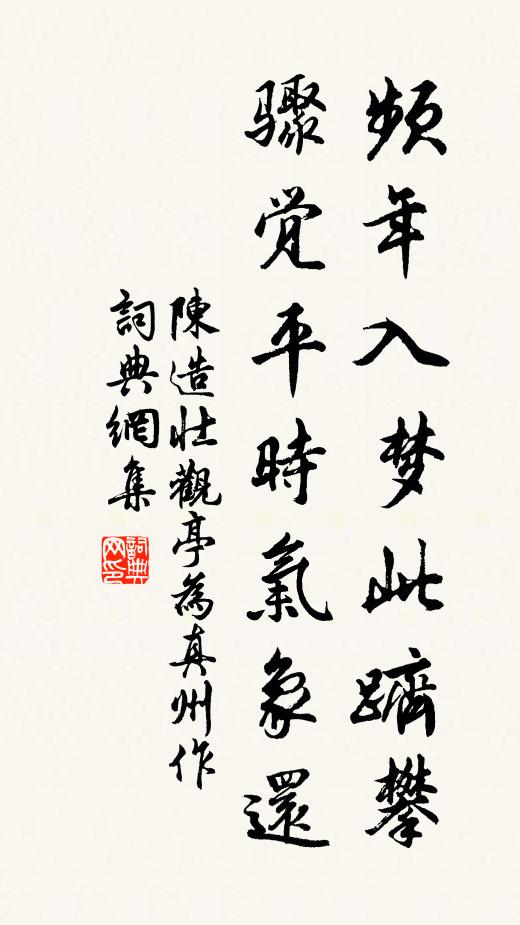 頻年入梦此躋攀
骤觉平時氣象還
陳造壮觀亭為真州作
詞典網集
詞典网印